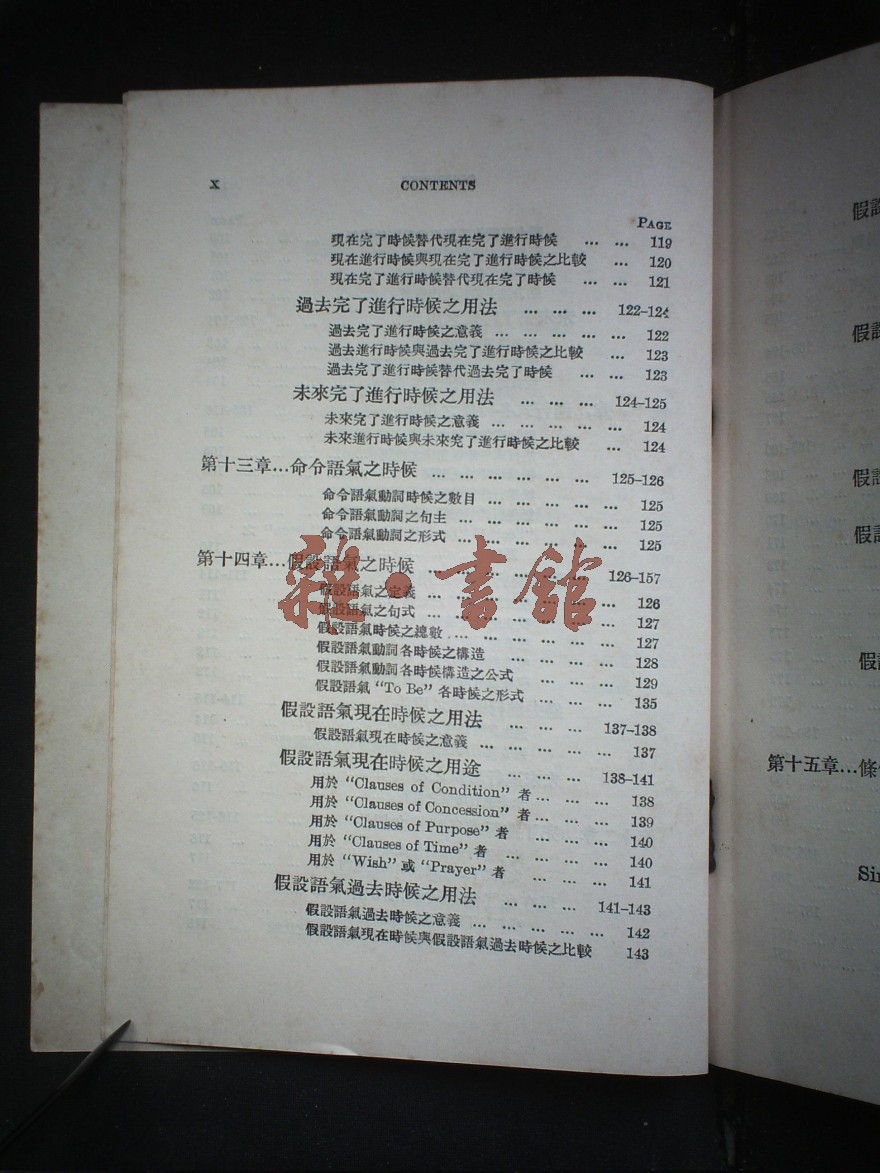 X CONTENTS
PAGE
現在完了時候替代現在完了進行時候 ... ... 119
現在進行時候與現在完了進行時候之比較 ... 120
現在完了進行時候替代現在完了時候 ... ... 121
過去完了進行時候之用法 ... ... ... 122–124
過去完了進行時候之意義 ... ... ... ... ... 122
過去進行時候與過去完了進行時候之比較 ... 123
過去完了進行時候替代過去完了時候 ... ... 123
未來完了進行時候之用法 ... ... ... 124–125
未來完了進行時候之意義 ... ... ... ... ... 124
未來進行時候與未來完了進行時候之比較 ... 124
第十三章...命令語氣之時候 ... ... ... ... ... ... 125–126
命令語氣動詞時候之數目 ... ... ... ... ... 125
命令語氣動詞之句主 ... ... ... ... ... ... 125
命令語氣動詞之形式 ... ... ... ... ... ... 125
第十四章...假設語氣之時候 ... ... ... ... ... ... 126–157
假設語氣之定義 ... ... ... ... ... ... ... 126
假設語氣之句式 ... ... ... ... ... ... ... 127
假設語氣時候之總數 ... ... ... ... ... ... 127
假設語氣動詞各時候之構造 ... ... ... ... 128
假設語氣動詞各時候構造之公式 ... ... ... 129
假設語氣 “To Be” 各時候之形式 ... ... ... 135
假設語氣現在時候之用法 ... ... ... 137–138
假設語氣現在時候之意義 ... ... ... ... ... 137
假設語氣現在時候之用途 ... ... ... 138–141
用於 “Clauses of Condition” 者 ... ... ... 138
用於 “Clauses of Concession” 者 ... ... ... 139
用於 “Clauses of Purpose” 者 ... ... ... 140
用於 “Clauses of Time” 者 ... ... ... ... 140
用於 “Wish” 或 “Prayer” 者 ... ... ... 141
假設語氣過去時候之用法 ... ... ... 141–143
假設語氣過去時候之意義 ... ... ... ... ... 142
假設語氣現在時候與假設語氣過去時候之比較 143
雜·書館
假設
假設
假設
假設
假設
第十五章...條
Sin